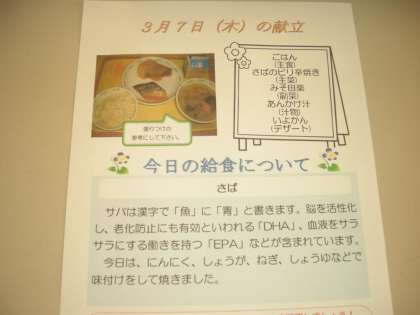 3月7日（木）の献立
ごはん
（主食）
さばのピリ辛焼き
（主菜）
みそ田楽
（副菜）
あんかけ汁
（汁物）
いよかん
（デザート）
盛りつけの
参考にして下さい。
今日の給食について
さば
サバは漢字で「魚」に「青」と書きます。脳を活性化
し、老化防止にも有効といわれる「DHA」、血液をサラ
サラにする働きを持つ「EPA」などが含まれています。
今日は、にんにく、しょうが、ねぎ、しょうゆなどで
味付けをして焼きました。